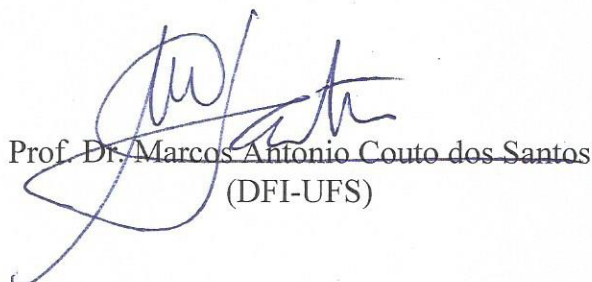 Prof. Dr. Marcos Antonio Couto dos Santos
(DFI-UFS)